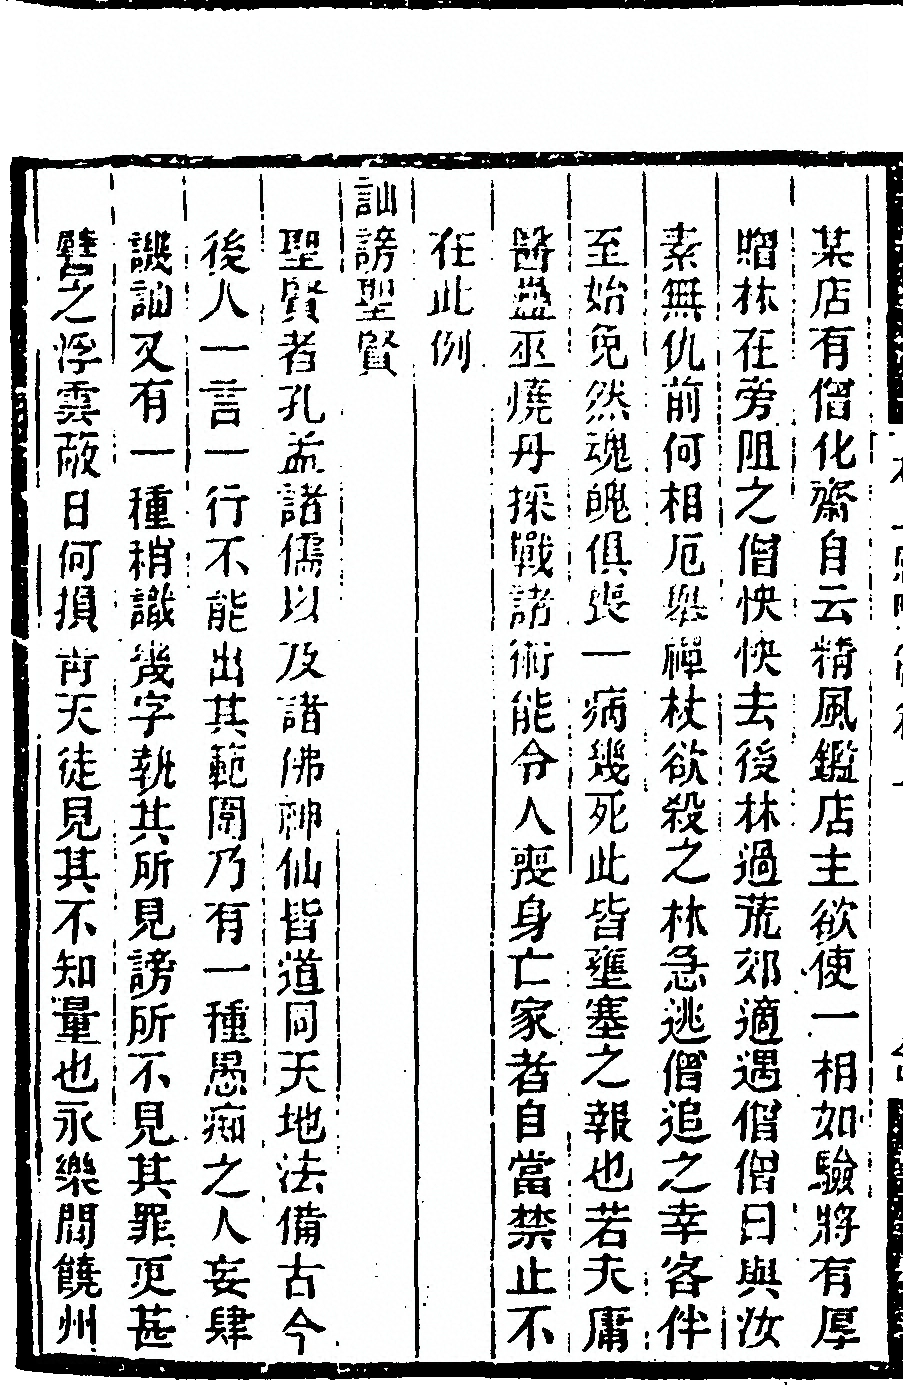 某店有僧化齋自云精風鑑店主欲使一相如驗將有厚
贈林在旁阻之僧怏怏去後林過荒郊適遇僧僧曰與汝
素無仇前何相厄舉禪杖欲殺之林急逃僧追之幸客伴
至始免然魂魄俱喪一病幾死此皆壅塞之報也若夫庸
醫蠱巫燒丹採戰諸術能令人喪身亡家者自當禁止不
在此例
訕謗聖賢
聖賢者孔孟諸儒以及諸佛神仙皆道同天地法備古今
後人一言一行不能出其範圍乃有一種愚痴之人妄肆
譏訕又有一種稍識幾字執其所見謗所不見其罪更甚
譬之浮雲蔽日何損青天徒見其不知量也永樂間饒州